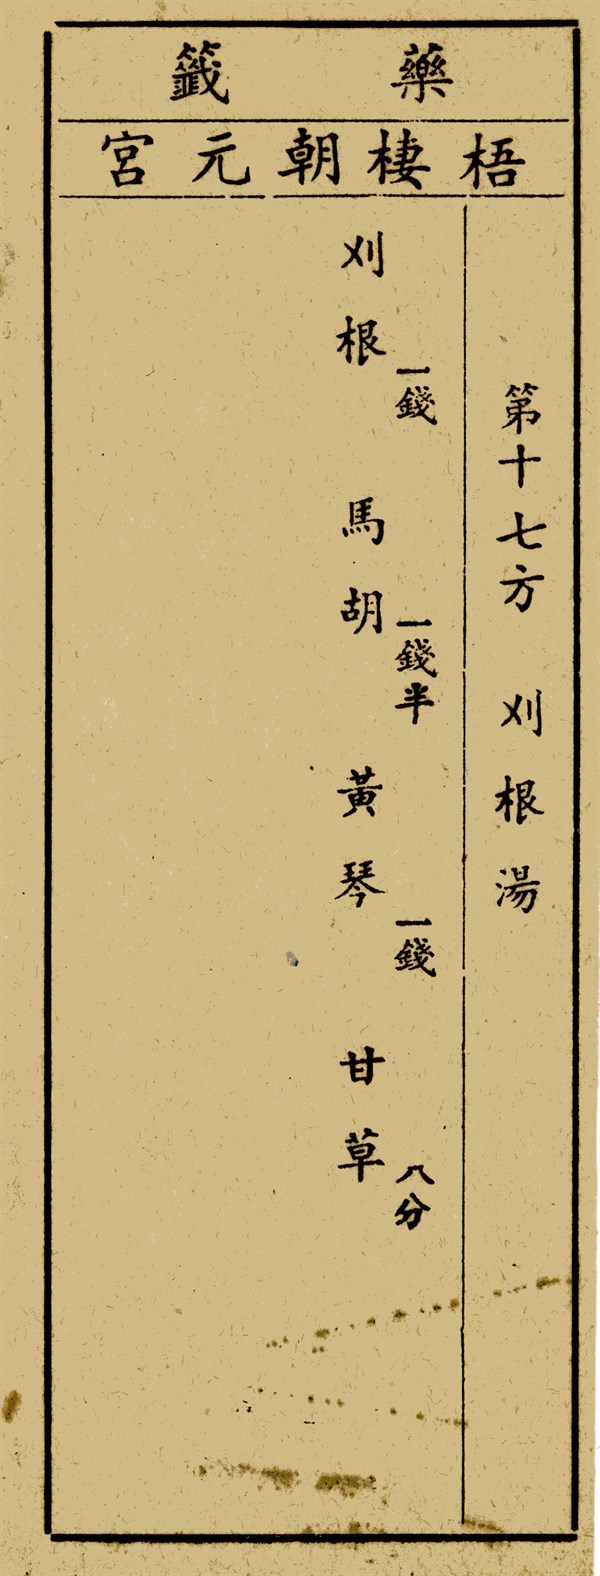 藥籤
梧棲朝元宮
第十七方 刈根湯
刈根 一錢 馬胡 一錢半 黃琴 一錢 甘草 八分